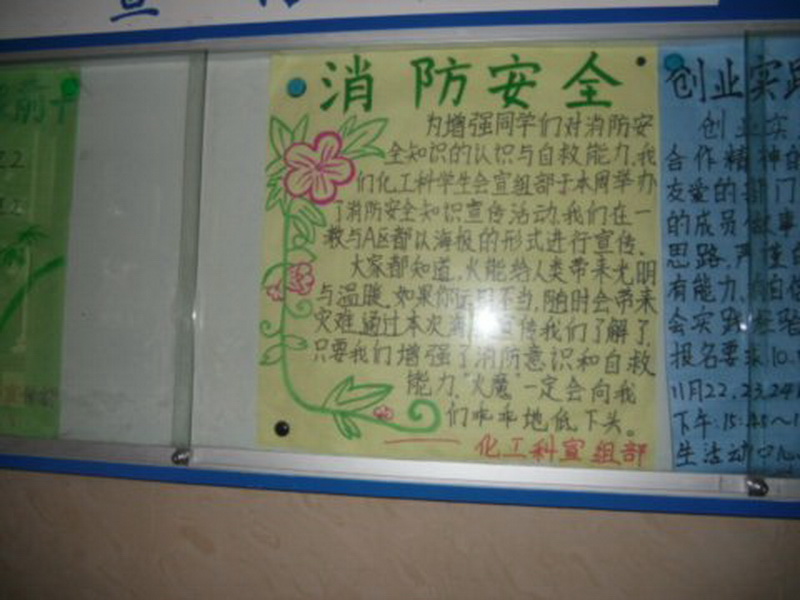 宣
前
消防安全
为增强同学们对消防安
全知识的认识与自救能力,我
们化工科学生会宣组部于本周举办
了消防安全知识宣传活动,我们在一
教与A区都以海报的形式进行宣传.
大家都知道,火能给人类带来光明
与温暖.如果你运用不当,随时会带来
灾难.通过本次消防宣传我们了解了
只要我们增强了消防意识和自救
能力."火魔"一定会向我
们乖乖地低下头。
化工科宣组部
创业实践
创业实
合作精神的
友爱的部门
的成员做事
思路,严谨的
有能力、自信
会实践经验
报名要求10.
11月22.23.24
下午:15:45~1
生活动中心